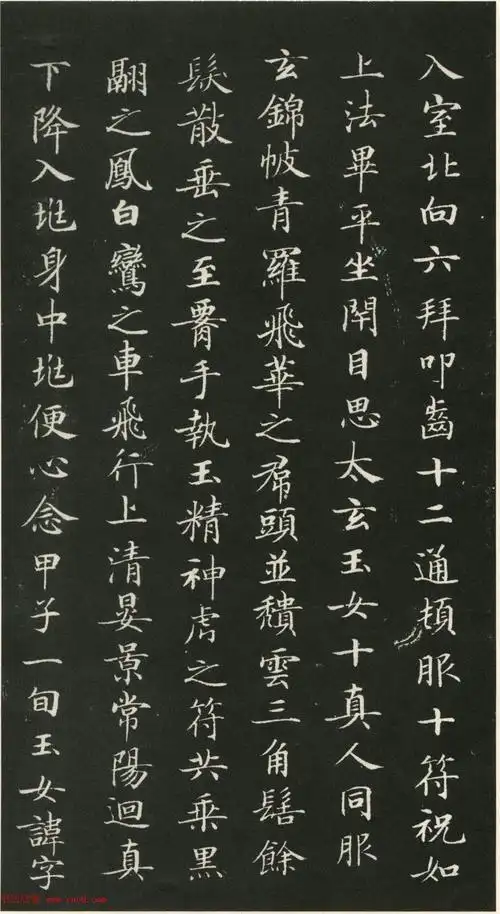 入室北向六拜叩齒十二通頓服十符祝如
上法畢平坐閇目思太玄玉女十真人同服
玄錦帔青羅飛華之帬頭並穨雲三角髻餘
髮散垂之至腰手執玉精神虎之符共乘黑
翮之鳳白鸞之車飛行上清晏景常陽迴真
下降入垗身中垗便心念甲子一旬玉女諱字